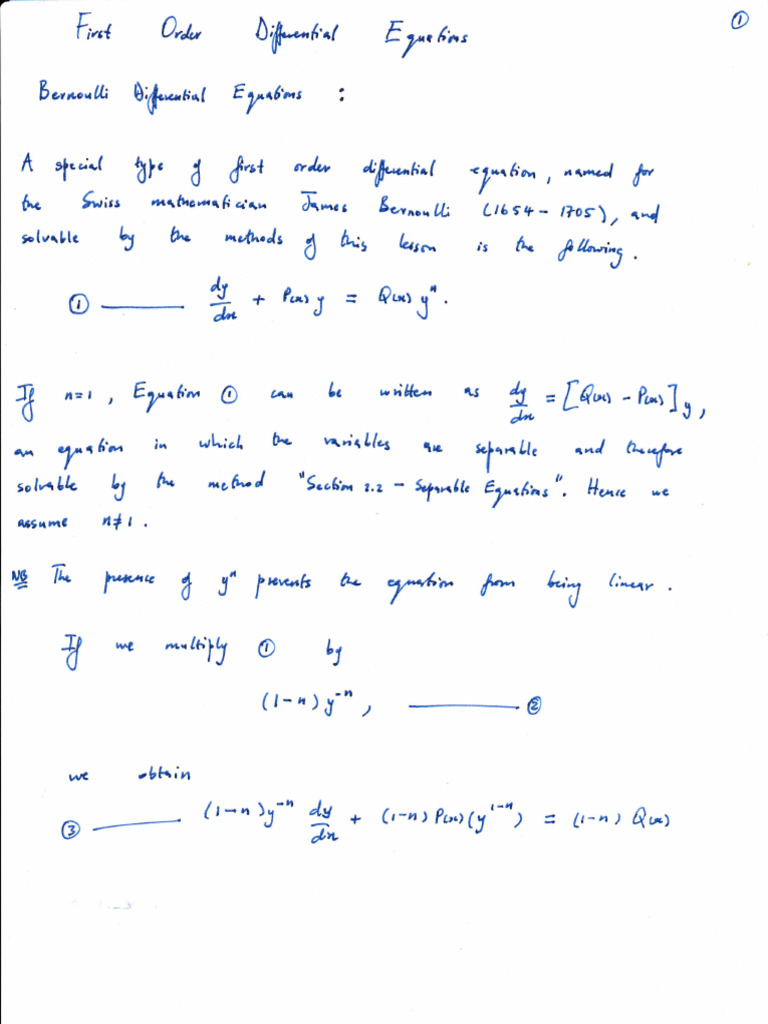 ①
First Order Differential Equations
Bernoulli Differential Equations :
A special type of first order differential equation, named for
the Swiss mathematician James Bernoulli (1654 - 1705), and
solvable by the methods of this lesson is the following.
① ——— dy/dx + P(x) y = Q(x) yⁿ.
If n=1, Equation ① can be written as dy/dx = [Q(x) - P(x)] y,
an equation in which the variables are separable and therefore
solvable by the method "Section 2.2 - Separable Equations". Hence we
assume n≠1.
NB The presence of yⁿ prevents the equation from being linear.
If we multiply ① by
(1-n) y⁻ⁿ, ——— ②
we obtain
③ ——— (1-n) y⁻ⁿ dy/dx + (1-n) P(x) (y¹⁻ⁿ) = (1-n) Q(x)